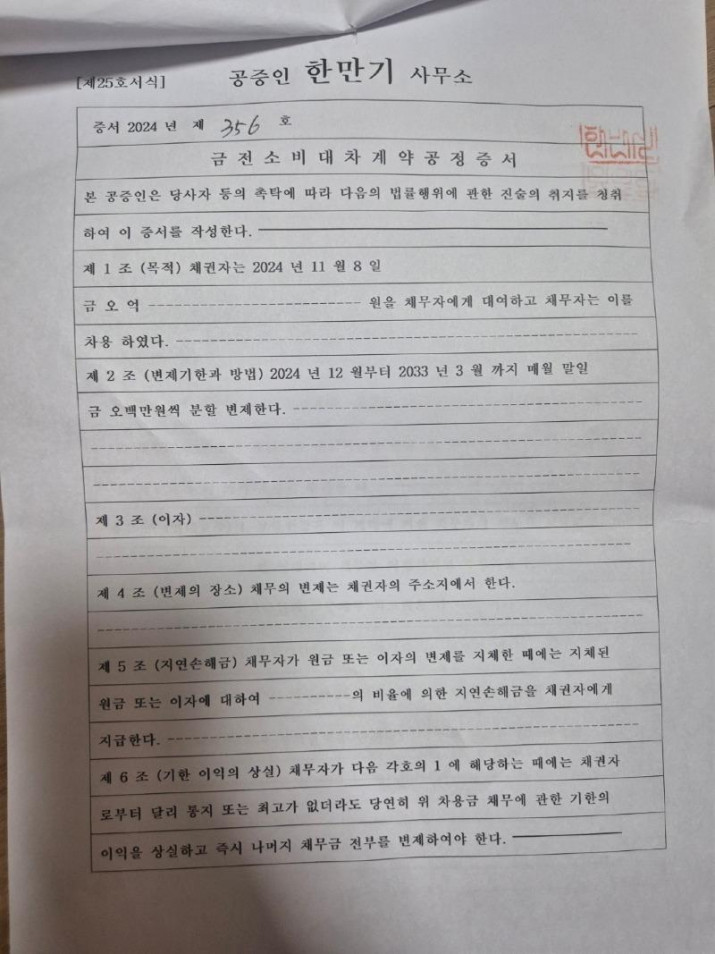 [제25호서식] 공증인 한만기 사무소
증서 2024 년 제 356 호
금전소비대차계약공정증서
본 공증인은 당사자 등의 촉탁에 따라 다음의 법률행위에 관한 진술의 취지를 청취
하여 이 증서를 작성한다.
제 1 조 (목적) 채권자는 2024 년 11 월 8 일
금 오 억 원을 채무자에게 대여하고 채무자는 이를
차용 하였다.
제 2 조 (변제기한과 방법) 2024 년 12 월부터 2033 년 3 월 까지 매월 말일
금 오백만원씩 분할 변제한다.
제 3 조 (이자)
제 4 조 (변제의 장소) 채무의 변제는 채권자의 주소지에서 한다.
제 5 조 (지연손해금) 채무자가 원금 또는 이자의 변제를 지체한 때에는 지체된
원금 또는 이자에 대하여 ----------의 비율에 의한 지연손해금을 채권자에게
지급한다.
제 6 조 (기한 이익의 상실) 채무자가 다음 각호의 1 에 해당하는 때에는 채권자
로부터 달리 통지 또는 최고가 없더라도 당연히 위 차용금 채무에 관한 기한의
이익을 상실하고 즉시 나머지 채무금 전부를 변제하여야 한다.